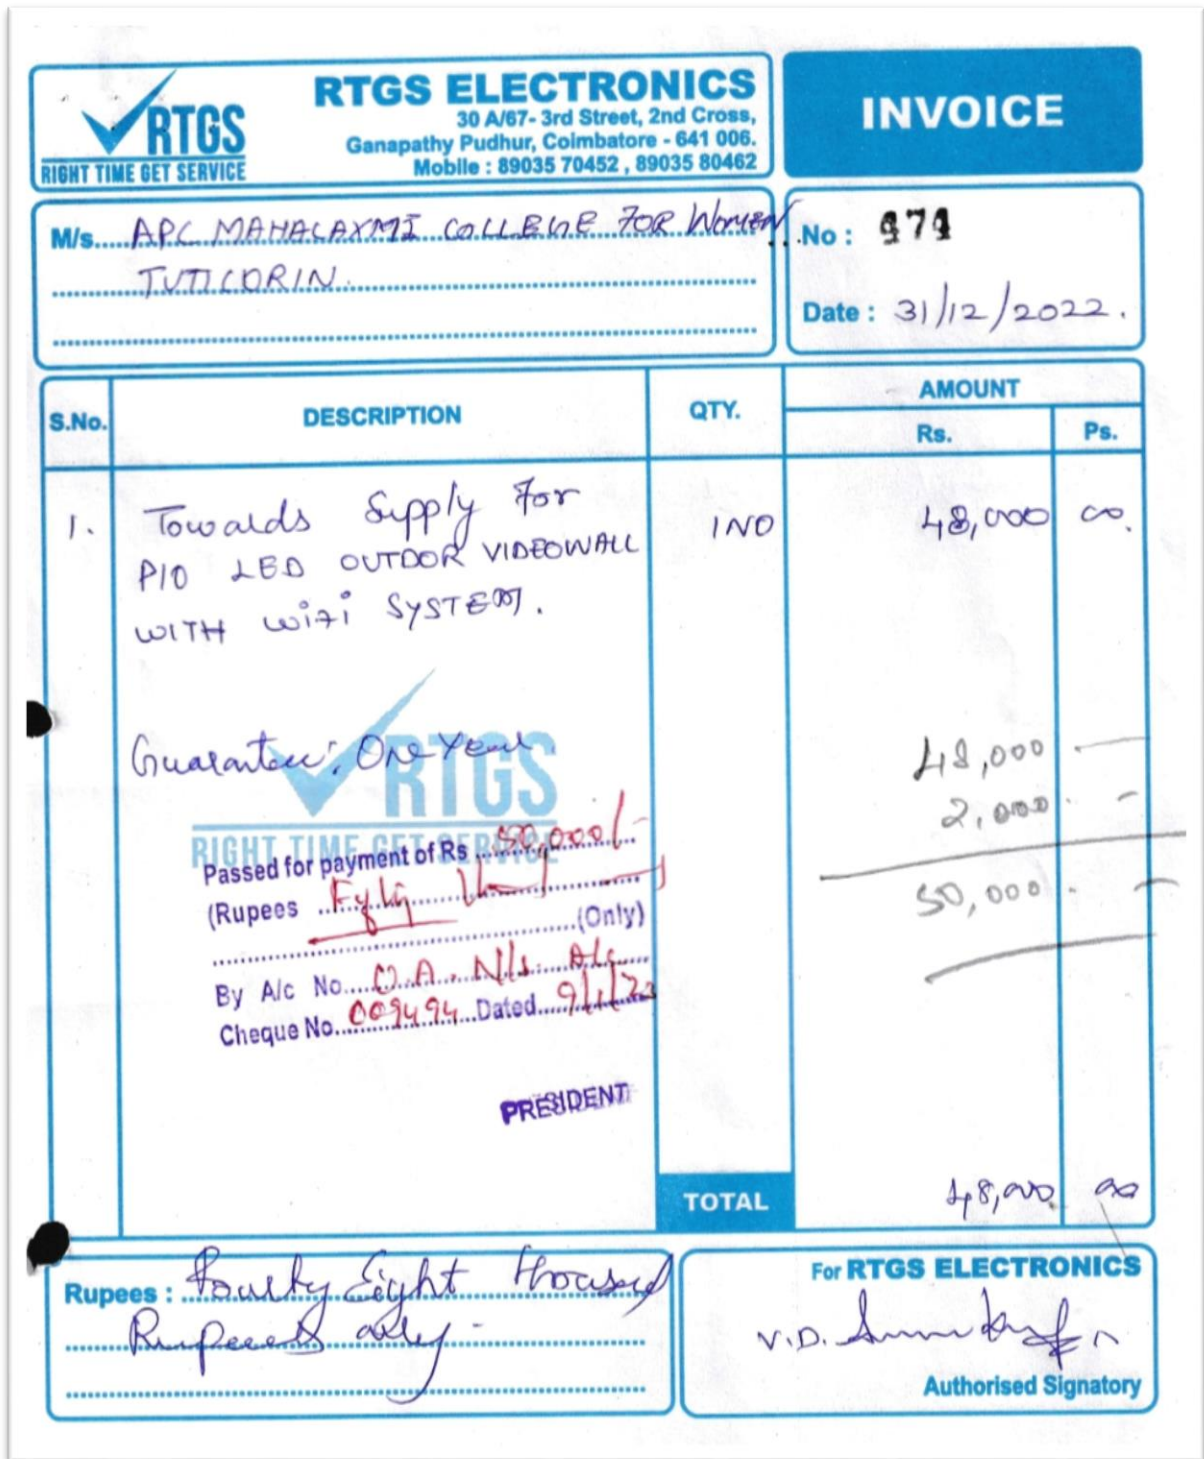 RTGS
RIGHT TIME GET SERVICE
RTGS ELECTRONICS
30 A/67- 3rd Street, 2nd Cross,
Ganapathy Pudhur, Coimbatore - 641 006.
Mobile : 89035 70452 , 89035 80462
INVOICE
M/s. APC MAHALAXMI COLLEGE FOR WOMEN
TUTICORIN.
No :
Date : 31/12/2022.
S.No. DESCRIPTION QTY. AMOUNT
Rs. Ps.
1. Towards Supply For 1NO 48,000 00.
P10 LED OUTDOOR VIDEOWALL
WITH WiFi SYSTEM.
Guarantee: One Year.
48,000 . —
2,000 . —
50,000 . —
RTGS
RIGHT TIME GET SERVICE
Passed for payment of Rs 50,000/-
(Rupees
(Only)
By A/c No.
Cheque No. 009494 Dated 9/1/23
PRESIDENT
TOTAL 48,000 00
Rupees : Fourty Eight
Rupees only
For RTGS ELECTRONICS
V.D.
Authorised Signatory